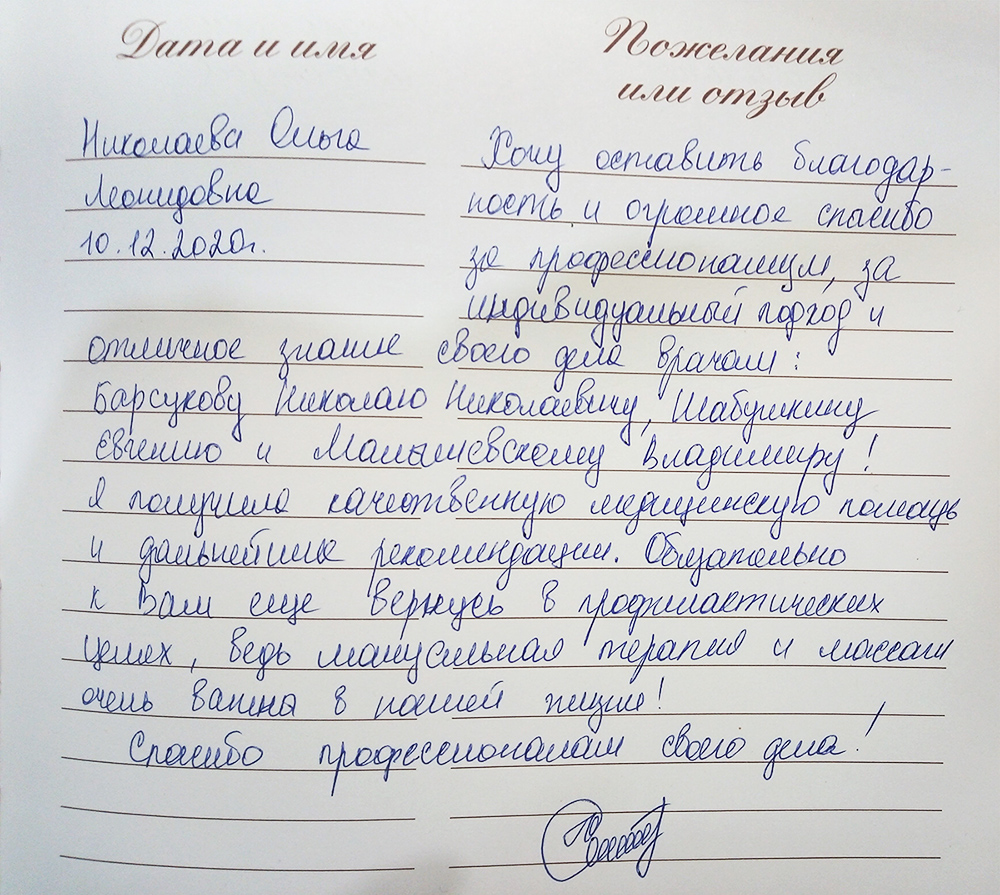 Дата и имя
Пожелания
или отзыв
Николаева Ольга
Леонидовна
10.12.2020г.
Хочу оставить благодар-
ность и огромное спасибо
за профессионализм, за
индивидуальный подход и
отличное знание своего дела врачам:
Барсукову Николаю Николаевичу, Шабушкину
Евгению и Малышевскому Владимиру!
Я получила качественную медицинскую помощь
и дальнейшие рекомендации. Обязательно
к Вам еще вернусь в профилактических
целях, ведь мануальная терапия и массаж
очень важна в нашей жизни!
Спасибо профессионалам своего дела!